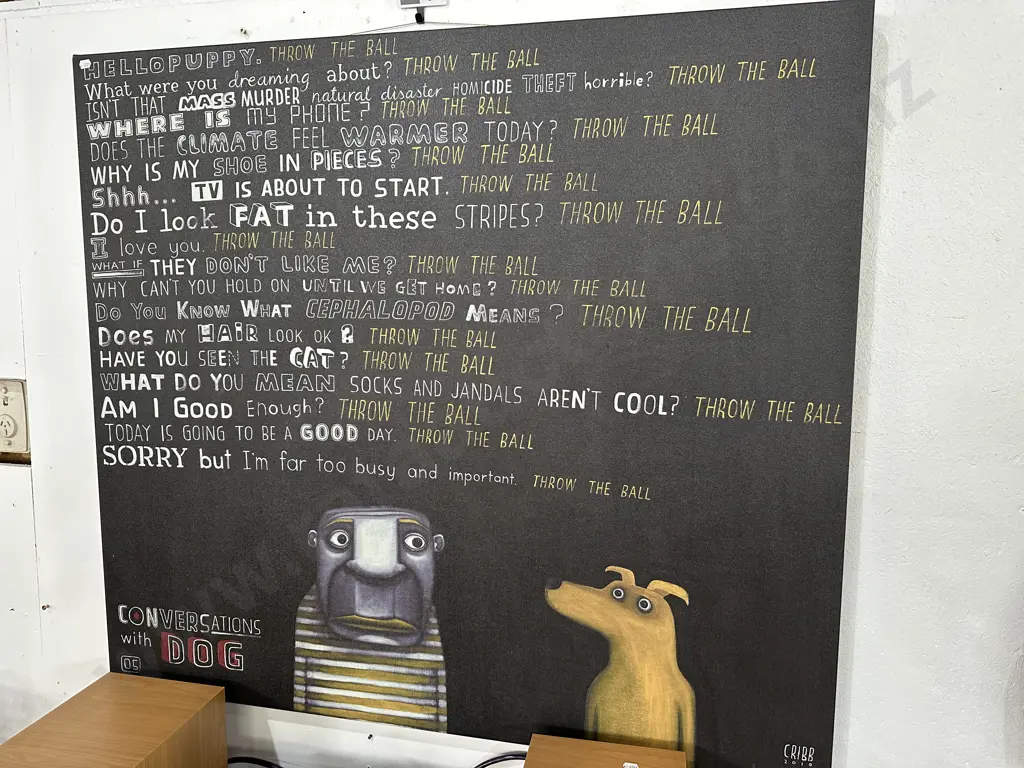 HELLOPUPPY. THROW THE BALL
What were you dreaming about? THROW THE BALL
ISN'T THAT MASS MURDER natural disaster HOMICIDE THEFT horrible? THROW THE BALL
WHERE IS MY PHONE? THROW THE BALL
DOES THE CLIMATE FEEL WARMER TODAY? THROW THE BALL
WHY IS MY SHOE IN PIECES? THROW THE BALL
Shhh... TV IS ABOUT TO START. THROW THE BALL
Do I look FAT in these STRIPES? THROW THE BALL
I love you. THROW THE BALL
WHAT IF THEY DON'T LIKE ME? THROW THE BALL
WHY CAN'T YOU HOLD ON UNTIL WE GET HOME? THROW THE BALL
Do You Know What CEPHALOPOD Means? THROW THE BALL
Does MY HAIR LOOK OK? THROW THE BALL
HAVE YOU SEEN THE CAT? THROW THE BALL
WHAT DO YOU MEAN SOCKS AND JANDALS AREN'T COOL? THROW THE BALL
Am I Good Enough? THROW THE BALL
TODAY IS GOING TO BE A GOOD DAY. THROW THE BALL
SORRY but I'm far too busy and important. THROW THE BALL
CONVERSATIONS
with DOG
05
CRIBB
2010